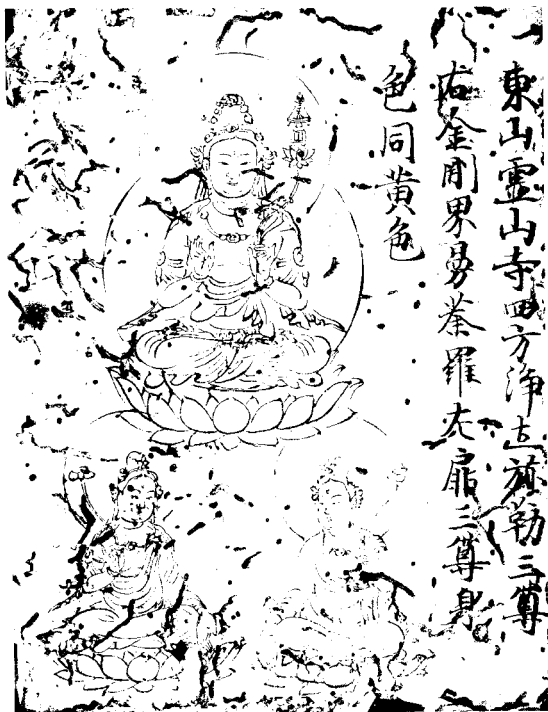 東山霊山寺四方浄土弥勒三尊
右金剛界曼荼羅左扉三尊身
色同黄色